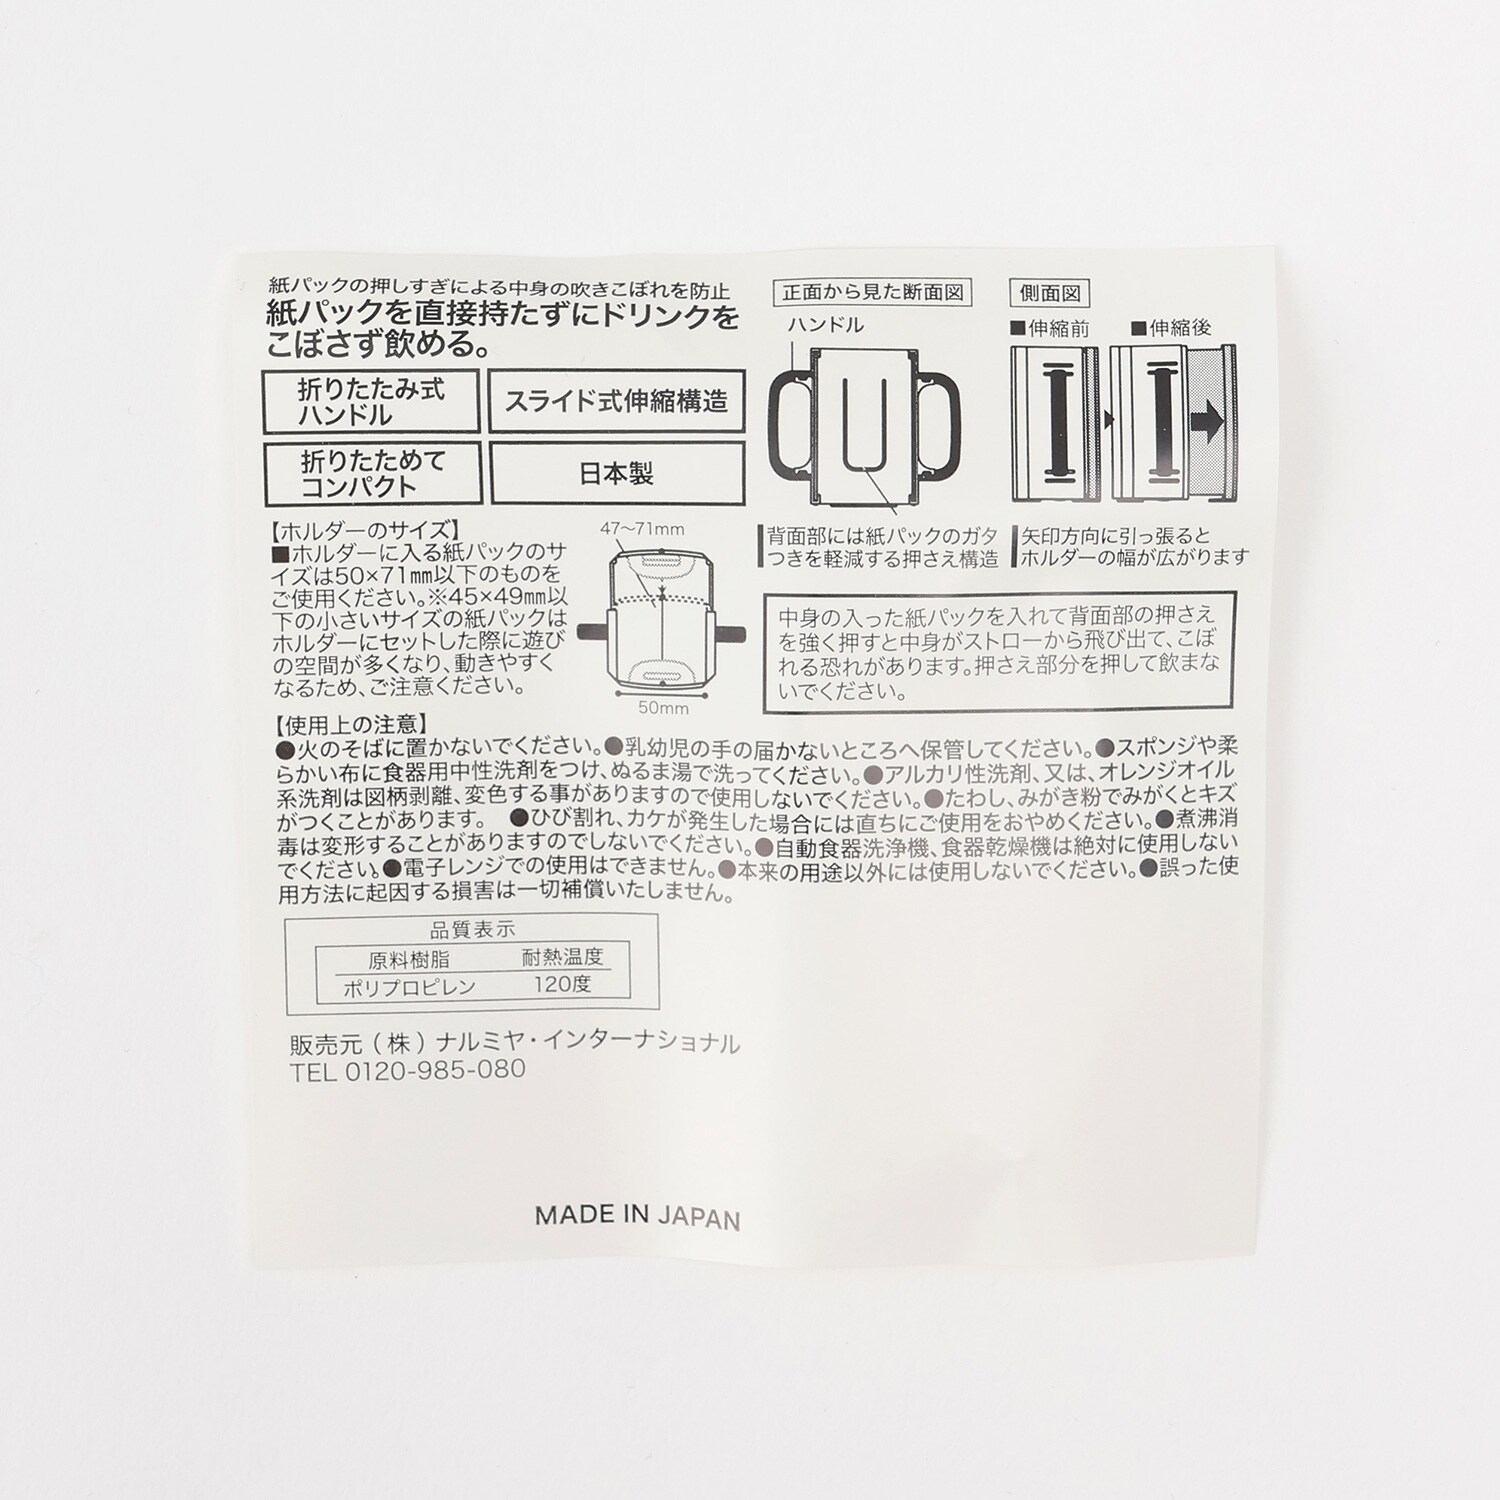 紙パックの押しすぎによる中身の吹きこぼれを防止
紙パックを直接持たずにドリンクを
こぼさず飲める。
折りたたみ式
ハンドル
スライド式伸縮構造
折りたためて
コンパクト
日本製
正面から見た断面図
ハンドル
背面部には紙パックのガタ
つきを軽減する押さえ構造
側面図
■伸縮前
■伸縮後
矢印方向に引っ張ると
ホルダーの幅が広がります
【ホルダーのサイズ】
■ホルダーに入る紙パックのサ
イズは50×71㎜以下のものを
ご使用ください。※45×49㎜以
下の小さいサイズの紙パックは
ホルダーにセットした際に遊び
の空間が多くなり、動きやすく
なるため、ご注意ください。
47〜71mm
50mm
中身の入った紙パックを入れて背面部の押さえ
を強く押すと中身がストローから飛び出て、こぼ
れる恐れがあります。押さえ部分を押して飲まな
いでください。
【使用上の注意】
●火のそばに置かないでください。●乳幼児の手の届かないところへ保管してください。●スポンジや柔
らかい布に食器用中性洗剤をつけ、ぬるま湯で洗ってください。●アルカリ性洗剤、又は、オレンジオイル
系洗剤は図柄剥離、変色する事がありますので使用しないでください。●たわし、みがき粉でみがくとキズ
がつくことがあります。 ●ひび割れ、カケが発生した場合には直ちにご使用をおやめください。●煮沸消
毒は変形することがありますのでしないでください。●自動食器洗浄機、食器乾燥機は絶対に使用しない
でください。●電子レンジでの使用はできません。●本来の用途以外には使用しないでください。●誤った使
用方法に起因する損害は一切補償いたしません。
品質表示
原料樹脂 耐熱温度
ポリプロピレン 120度
販売元（株）ナルミヤ・インターナショナル
TEL 0120-985-080
MADE IN JAPAN